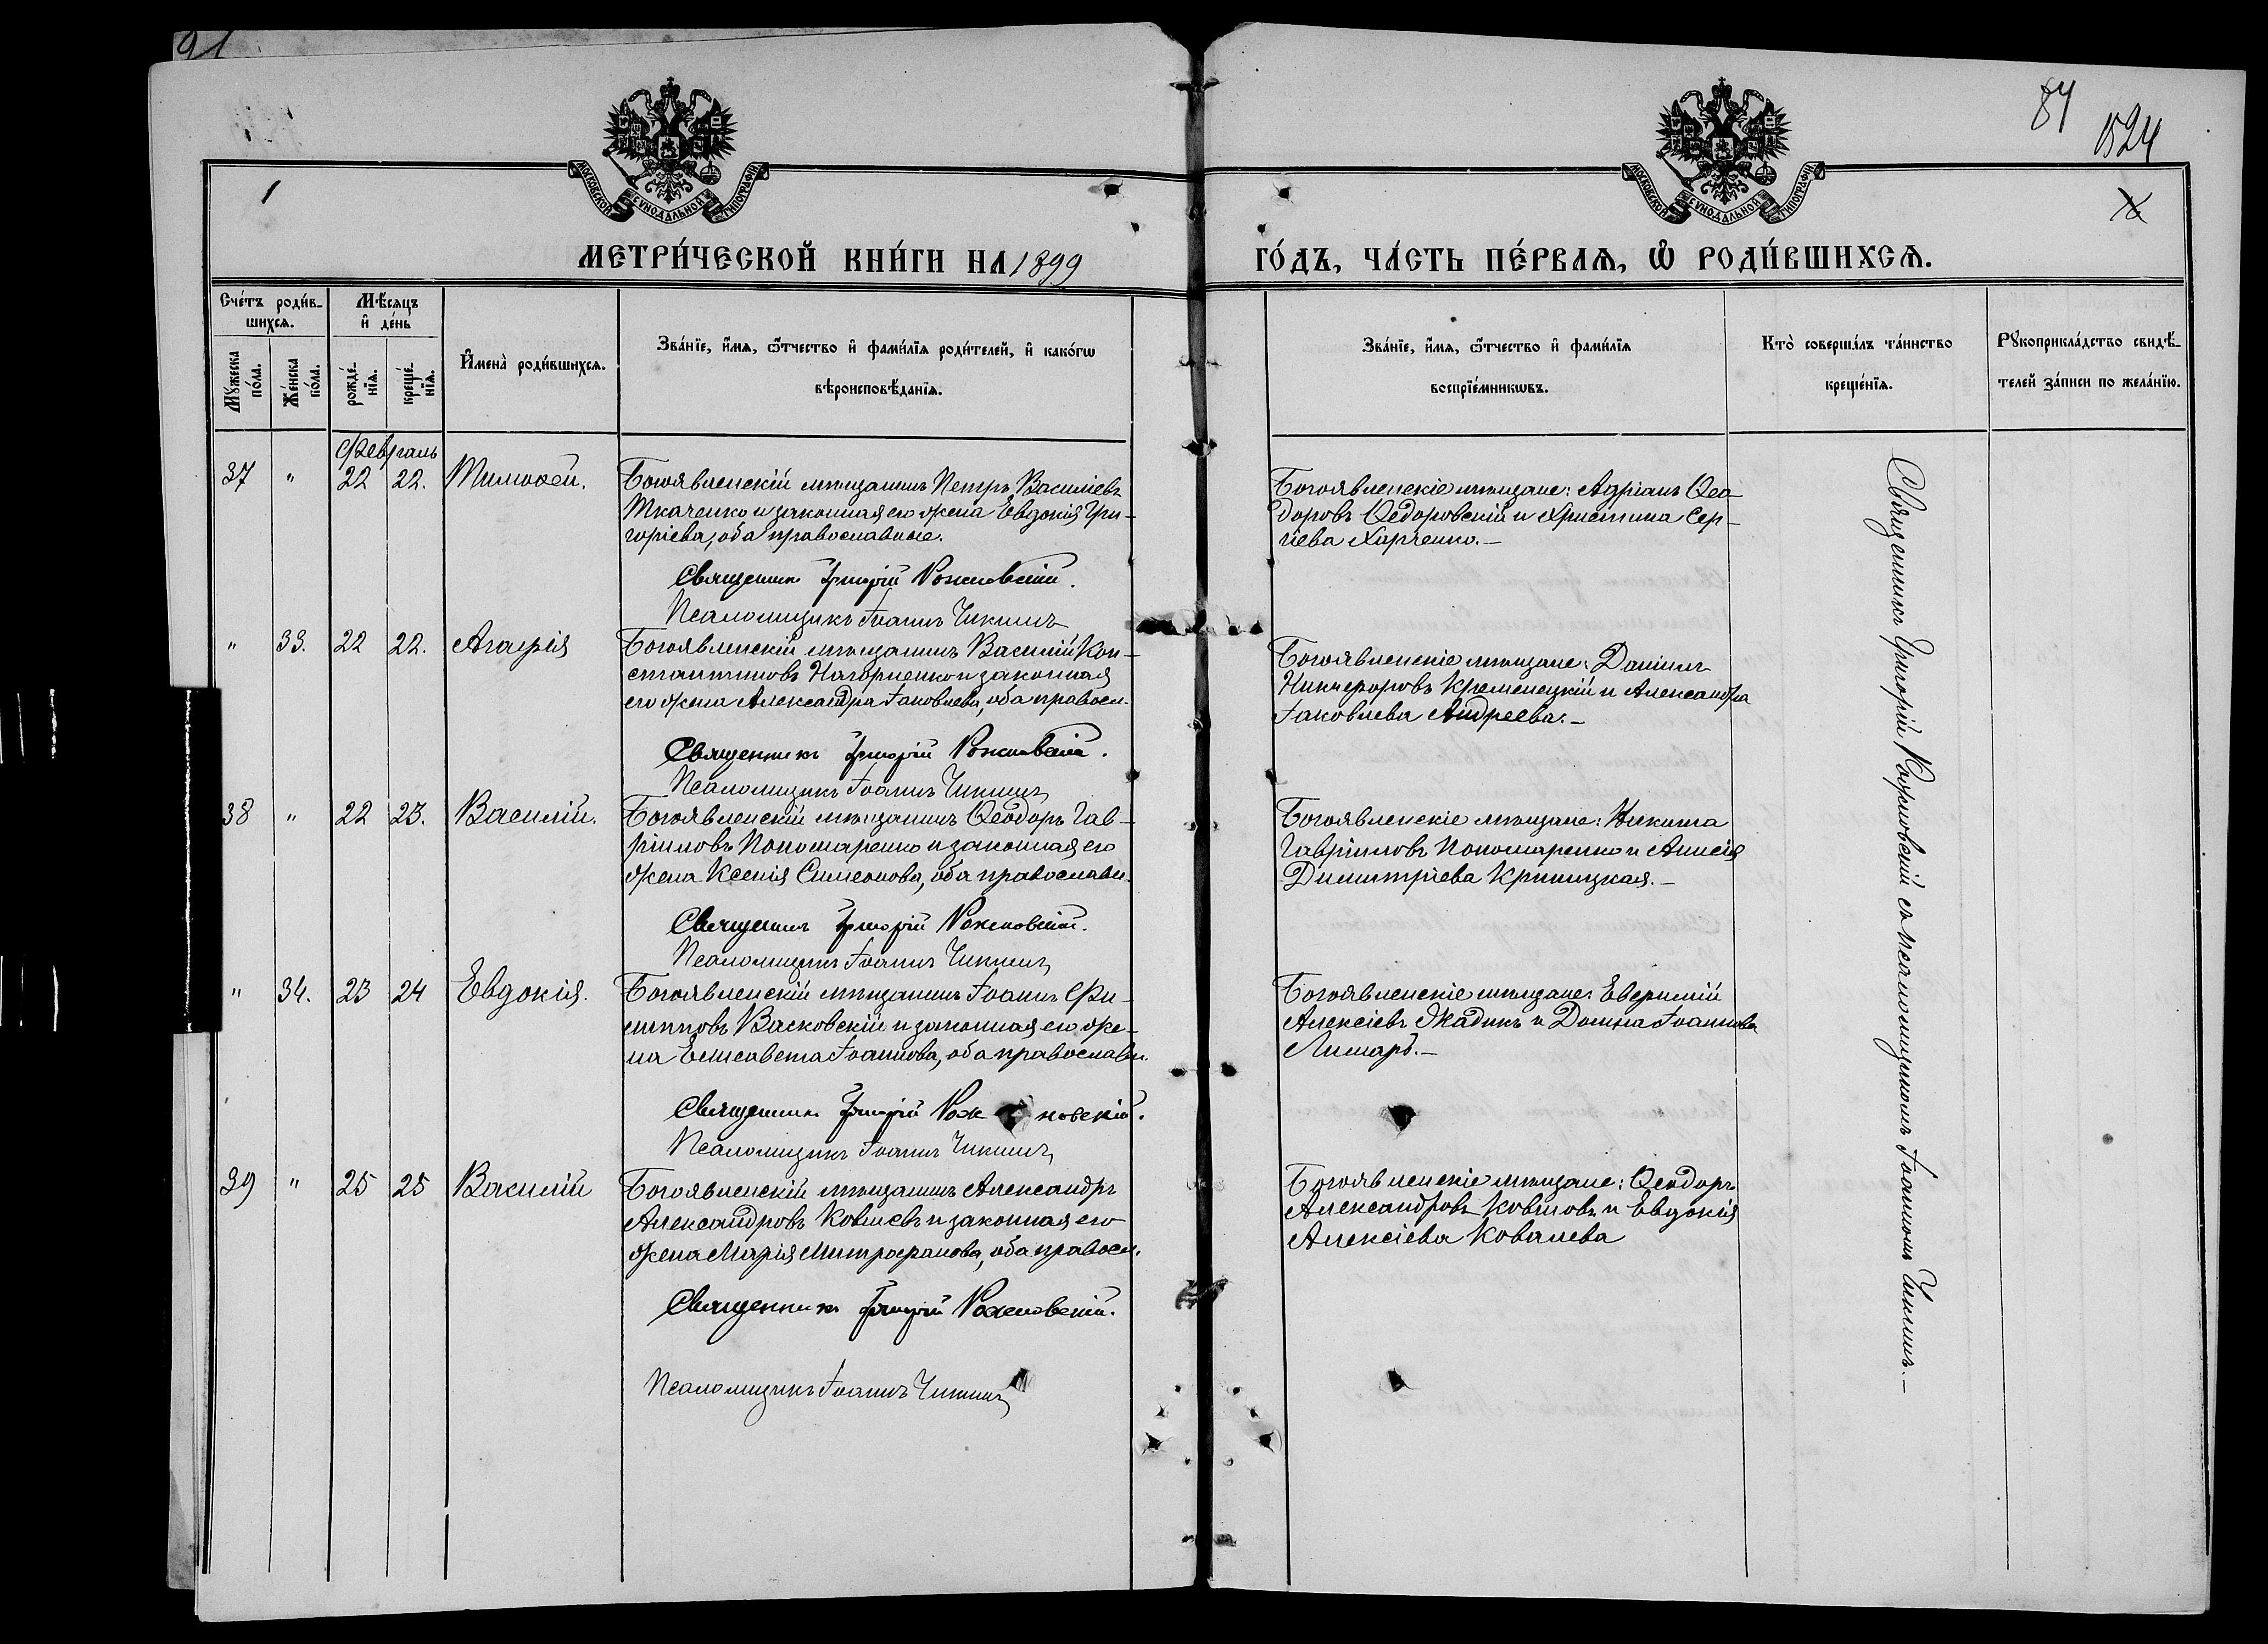 91
84
1524
1
МОСКОВСКОЙ СѴНОДАЛЬНОЙ ТИПОГРАФІИ
МОСКОВСКОЙ СѴНОДАЛЬНОЙ ТИПОГРАФІИ
МЕТРИ́ЧЕСКОЙ КНИ́ГИ НА 1899
ГО́ДЪ, ЧА́СТЬ ПЕ́РВАѦ, Ѡ҆ РОДИ́ВШИХСѦ.
Сче́тъ роди́в-
шихсѧ.
Мꙋ́жеска
по́ла.
Же́нска
по́ла.
Мѣ́сѧцъ
и҆ де́нь
рожде́-
нїѧ.
креще́-
нїѧ.
И҆мена̀ роди́вшихсѧ.
Зва́нїе, и҆́мѧ, ѻ҆́тчество и҆ фами́лїѧ роди́телей, и҆ како́гѡ
вѣроисповѣ́данїѧ.
Зва́нїе, и҆́мѧ, ѻ҆́тчество и҆ фами́лїѧ
воспрїе́мникѡвъ.
Кто̀ соверша́лъ та́инство
креще́нїѧ.
Рꙋкоприкла́дство свидѣ́-
телей за́писи по жела́нїю.
Февраль
37 " 22 22. Тимоѳей.
Богоявленскій мѣщанинъ Петръ Василіевъ
Ткаченко и законная его жена Евдокія Гри-
горіева, оба православные.
Священникъ Григорій Рожновскій.
Псаломщикъ Іоаннъ Чикинъ
Богоявленскіе мѣщане: Адріанъ Ѳео-
доровъ Ѳедоровскій и Христина Сер-
гіева Харченко.-
" 33. 22 22. Агафія
Богоявленскій мѣщанинъ Василій Кон-
стантиновъ Нагорненко и законная
его жена Александра Іаковлева, оба правосл.
Священникъ Григорій Рожновскій.
Псаломщикъ Іоаннъ Чикинъ
Богоявленскіе мѣщане: Даніилъ
Никифоровъ Кременецкій и Александра
Іаковлева Андреева.-
38 " 22 23. Василій.
Богоявленскій мѣщанинъ Ѳеодоръ Гав-
ріиловъ Пономаренко и законная его
жена Ксенія Симеонова, оба православн.
Священникъ Григорій Рожновскій.
Псаломщикъ Іоаннъ Чикинъ
Богоявленскіе мѣщане: Никита
Гавріиловъ Пономаренко и Анисія
Димитріева Криницкая.-
" 34. 23 24 Евдокія.
Богоявленскій мѣщанинъ Іоаннъ Фи-
липповъ Васковскій и законная его же-
на Елисавета Іоаннова, оба православн.
Священникъ Григорій Рожновскій.
Псаломщикъ Іоаннъ Чикинъ
Богоявленскіе мѣщане: Евфимій
Алексіевъ Жадикъ и Домна Іоаннова
Лимаръ.-
39 " 25 25 Василій
Богоявленскій мѣщанинъ Александръ
Александровъ Ковалевъ и законная его
жена Марія Митрофанова, оба правосл.
Священникъ Григорій Рожновскій.
Псаломщикъ Іоаннъ Чикинъ
Богоявленскіе мѣщане: Ѳеодоръ
Александровъ Ковалевъ и Евдокія
Алексіева Ковалева
Священникъ Григорій Рожновскій съ псаломщикомъ Іоанномъ Чикинъ.-